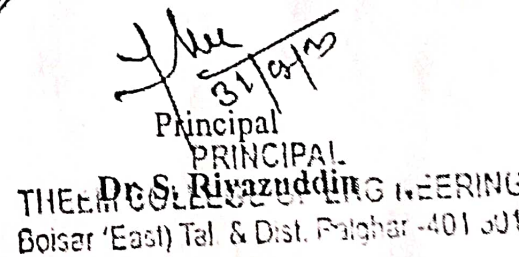 31
Principal
PRINCIPAL
Dr. S. Riyazuddin
THEEM COLLEGE OF ENGINEERING
Boisar (East) Tal. & Dist. Palghar -401 501